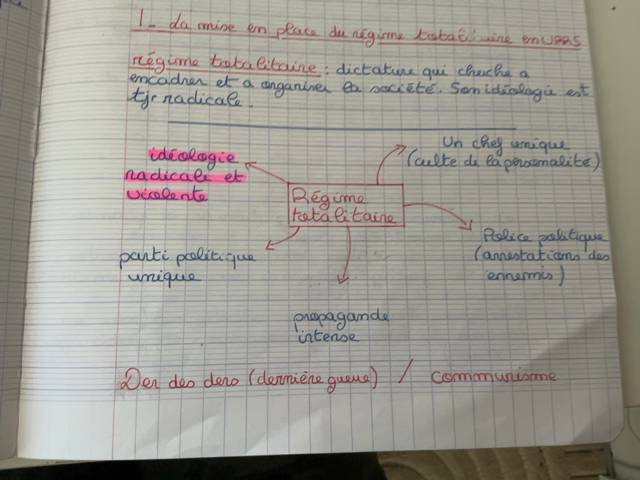 1- La mise en place du régime totalitaire en URSS
régime totalitaire : dictature qui cherche a
encadrer et a organiser la société. Son idéologie est
tjr radicale.
idéologie
radicale et
violente
Un chef unique
(culte de la personalité)
Régime
totalitaire
Police politique
(arrestations des
ennemis)
parti politique
unique
propagande
intense
Der des ders (dernière guerre) / communisme